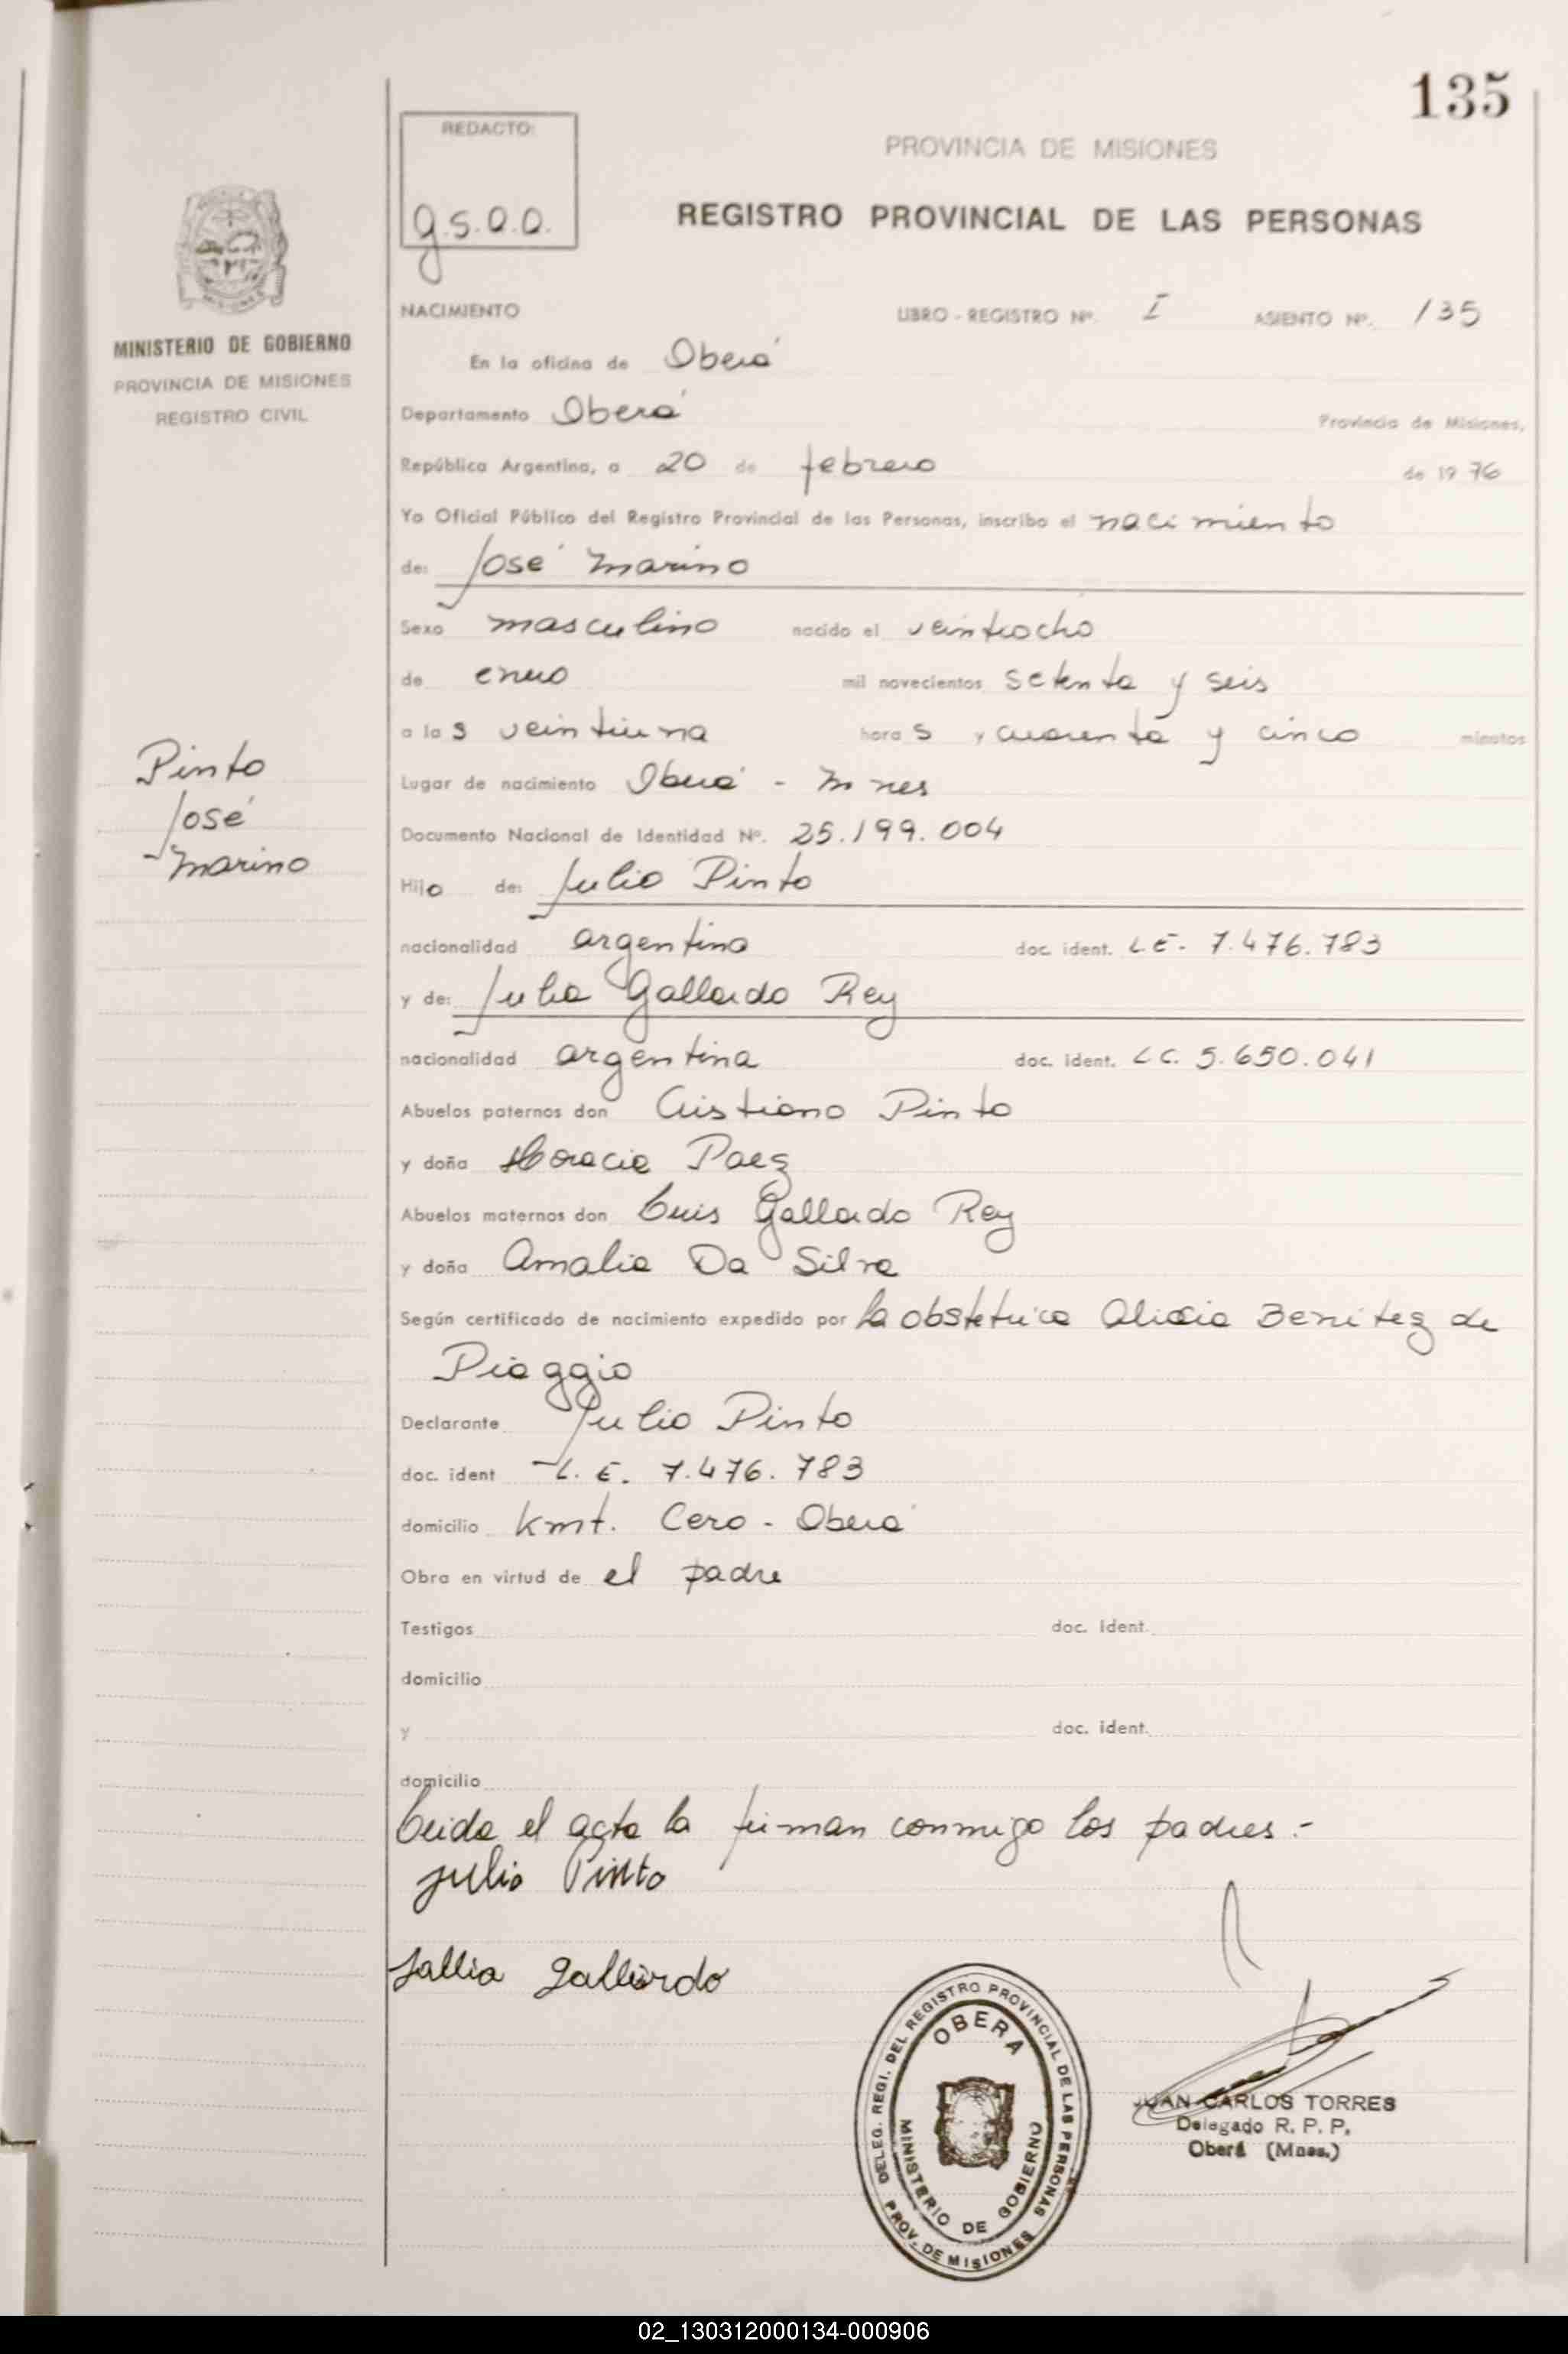 135
REDACTO:
g.s.a.a.
PROVINCIA DE MISIONES
REGISTRO PROVINCIAL DE LAS PERSONAS
MINISTERIO DE GOBIERNO
PROVINCIA DE MISIONES
REGISTRO CIVIL
Pinto
José
Marino
NACIMIENTO LIBRO - REGISTRO Nº. I ASIENTO Nº. 135
En la oficina de Oberá
Departamento Oberá Provincia de Misiones,
República Argentina, a 20 de febrero de 1976
Yo Oficial Público del Registro Provincial de las Personas, inscribo el nacimiento
de: José Marino
Sexo masculino nacido el veintiocho
de enero mil novecientos setenta y seis
a las veintiuna horas y cuarenta y cinco minutos
Lugar de nacimiento Oberá - Mnes
Documento Nacional de Identidad Nº. 25.199.004
Hijo de: Julio Pinto
nacionalidad argentino doc. ident. L.E. 7.476.783
y de: Julia Gallardo Rey
nacionalidad argentina doc. ident. L.C. 5.650.041
Abuelos paternos don Cristiano Pinto
y doña Horacia Paez
Abuelos maternos don Luis Gallardo Rey
y doña Amalia Da Silva
Según certificado de nacimiento expedido por la obstetrica Alicia Benitez de
Piaggio
Declarante Julio Pinto
doc. ident L.E. 7.476.783
domicilio Kmt. Cero - Oberá
Obra en virtud de el padre
Testigos doc. ident.
domicilio
y doc. ident.
domicilio
Leida el acta la firman conmigo los padres.-
Julio Pinto
Jallia gallardo
DELEG. REGI. DEL REGISTRO PROVINCIAL DE LAS PERSONAS
OBERA
MINISTERIO DE GOBIERNO
PROV. DE MISIONES
JUAN CARLOS TORRES
Delegado R. P. P.
Oberá (Mnes.)
02_130312000134-000906